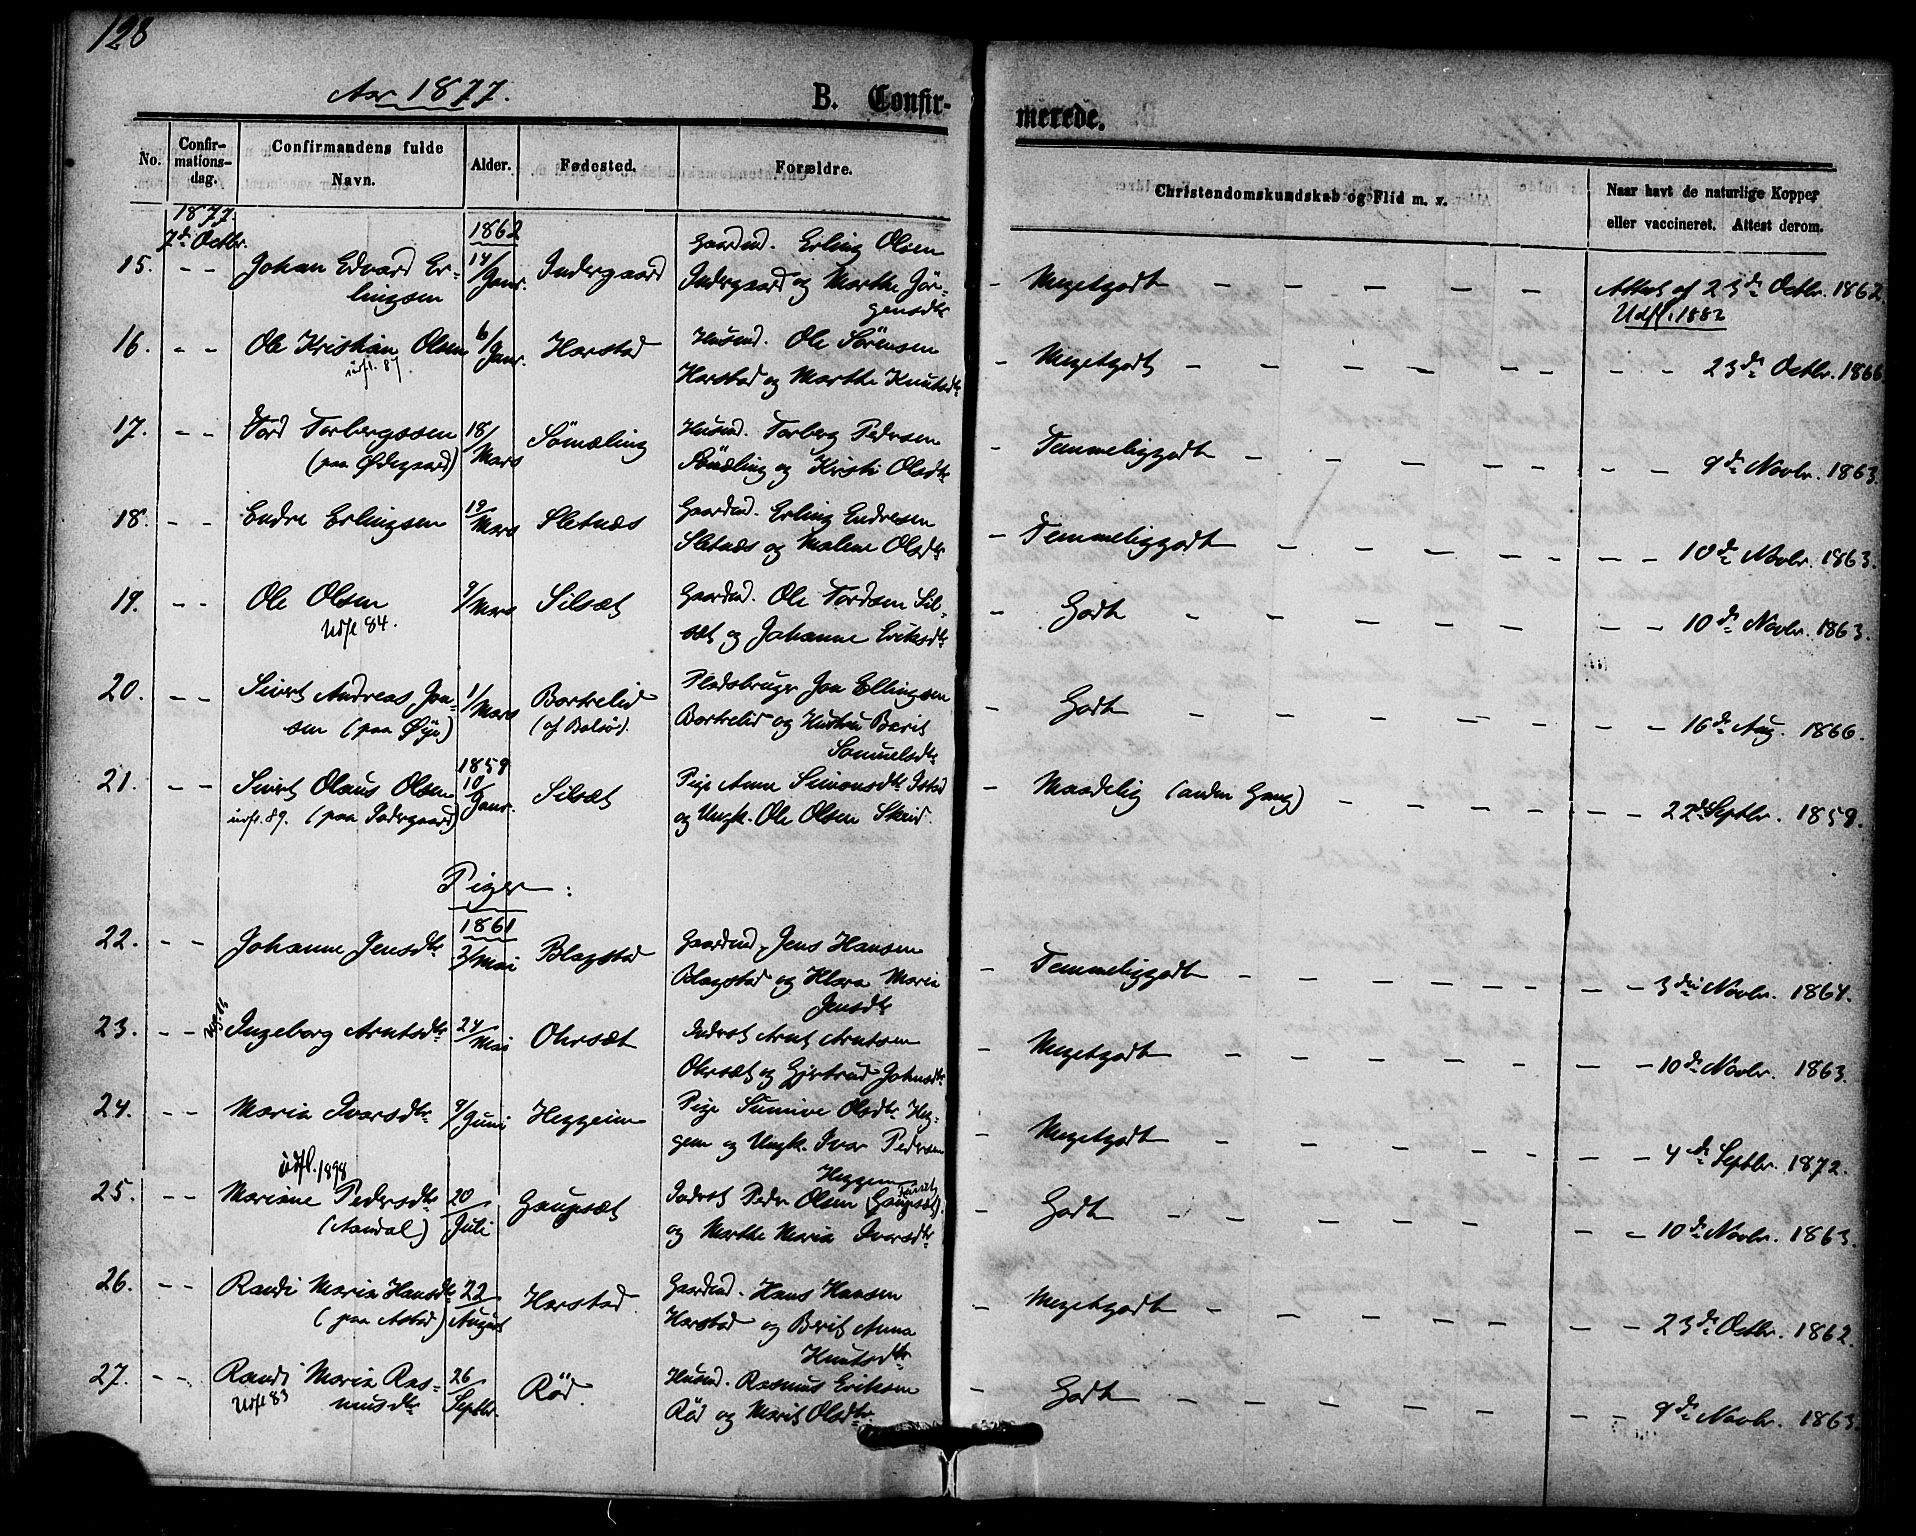 128
Aar 1877.
B. Confir-
merede.
No.
Confir-
mations-
dag.
Confirmandens fulde
Navn.
Alder.
Fødested.
Forældre.
Christendomskundskab og Flid m. v.
Naar havt de naturlige Kopper
eller vaccineret. Attest derom.
1877.
7de Octbr.
1862
15. - - Johan Edvard Er-
lingsen
14/Janr.
Indergaard
Gaardmd. Erling Olsen
Indergaard og Marthe Jör-
gensdtr
- Megetgodt - - - - -
Attest af 23de Octbr. 1862
Udfl. 1882
16. - - Ole Kristian Olsen
udfl. 87
6/Janr.
Harstad
Husmd. Ole Sörensen
Harstad og Marthe Knutsdtr
- Megetgodt - - - - - - - -
23de Octbr. 1866
17. - - Tord Torbergssen
(paa Ødegaard)
18/Mars
Sömæling
Husmd. Torberg Pedersen
Sömæling og Kristi Olsdtr
- Temmeliggodt - - - - - - - -
9de Novbr. 1863.
18. - - Endre Erlingsen
19/Mars
Sletnæs
Gaardmd. Erling Endresen
Sletnæs og Malene Olsdtr
- Temmeliggodt - - - - - - -
10de Novbr. 1863.
19. - - Ole Olsen
Udfl 84.
9/Mars
Silsæt
Gaardmd. Ole Tordsen Sil-
sæt og Johanne Eriksdtr
- Godt - - - - - - - -
10de Novbr. 1863.
20. - - Sivert Andreas Jon-
sen (paa Øijen)
1/Mars
Bortrelid
(af Bolsö).
Pladsbruger Jon Ellingsen
Bortrelid og Hustru Berit
Samuelsdtr
- Godt - - - - - - - -
16de Aug. 1866.
1859
21. - - Sivert Olaus Olsen
udfl. 89. (paa Indergaard)
10/Janr.
Silsæt
Pige Anne Simonsdtr Istad
og Ungk. Ole Olsen Skeid.
- Maadelig (anden Gang) - - - - - -
22de Septbr. 1859.
Piger:
1861
22. - - Johanne Jensdtr
3/Mai
Blagstad
Gaardmd. Jens Hansen
Blagstad og Klara Maria
Jensdtr
- Temmeliggodt - - - - - - - -
3die Novbr. 1864.
23. - - Ingeborg Arntsdtr
24/Mai
Ohrsæt
Inderst Arnt Arntsen
Ohrsæt og Gjertrud Johnsdtr
- Megetgodt - - -
10de Novbr. 1863.
24. - - Maria Ivarsdtr
9/Juni
Heggeim
Pige Sunnive Olsdtr Heg-
gem og Ungk. Ivar Pedersen
Heggem
- Megetgodt - - - - - - -
4de Septbr. 1872.
udfl. 1898
25. - - Mariane Pedersdtr
(Aandal)
20/Juli
Gaupsæt
Inderst Peder Olsen (Gaupsæt).
og Marthe Maria Ivarsdtr
- Godt - - - - - - -
10de Novbr. 1863.
26. - - Randi Maria Hansdtr
(paa Astad)
22/August
Harstad.
Gaardmd. Hans Hansen
Harstad og Berit Anna
Knutsdtr
- Megetgodt - - - - - - - -
23de Octbr. 1862.
27. - - Randi Maria Ras-
Udfl 83 musdtr
26/Septbr.
Röd.
Husmd. Rasmus Eriksen
Röd og Marit Olsdtr.
- Godt - - - - - - -
9de Novbr. 1863.